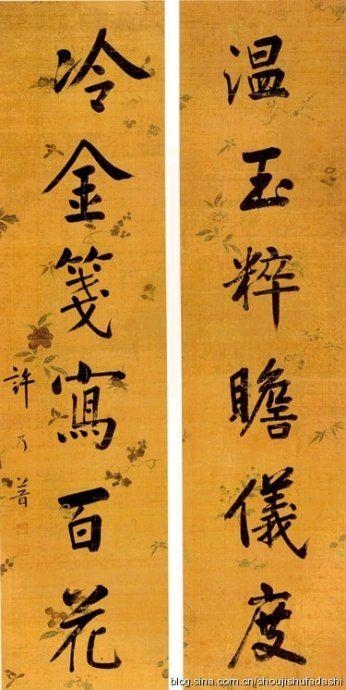 温玉粹瞻儀度
冷金箋寫百花
許乃普
blog.sina.com.cn/shoujishufadashi